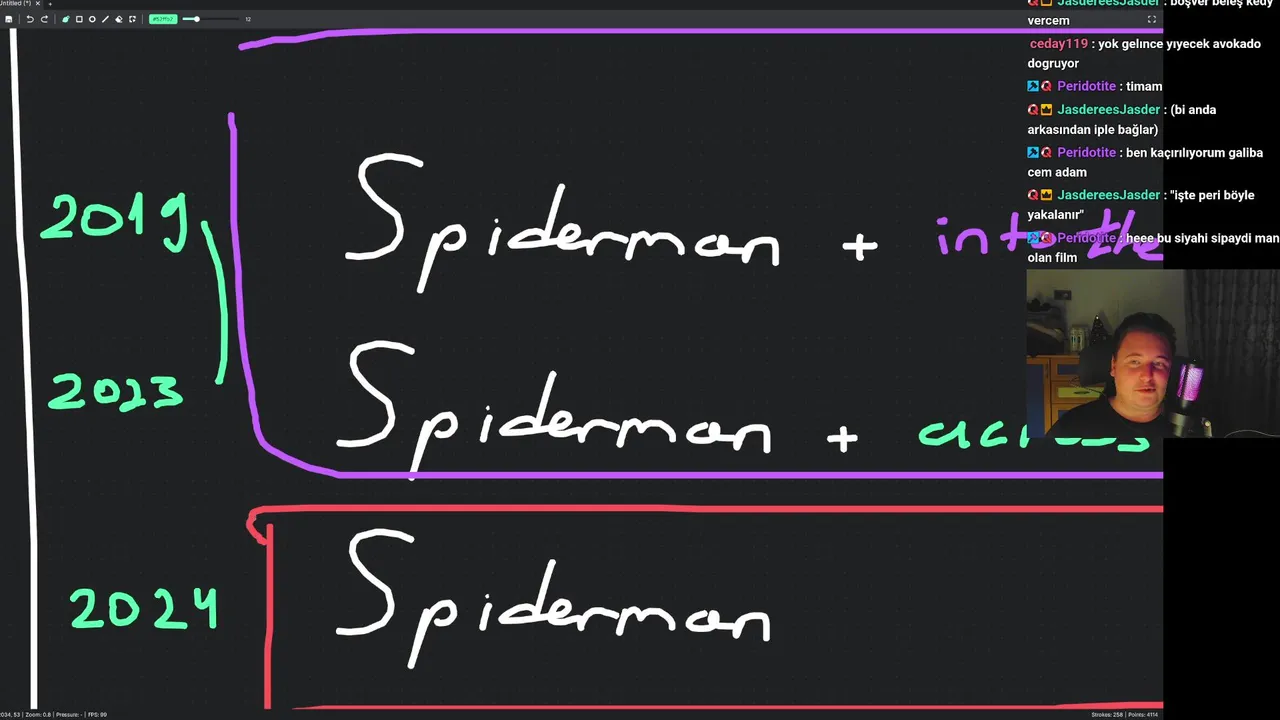 Untitled (*) × +
#52ffb2 12
JasdereesJasder : boşver beleş kedy
vercem
ceday119 : yok gelınce yıyecek avokado
dogruyor
Peridotite : timam
JasdereesJasder : (bi anda
arkasından iple bağlar)
Peridotite : ben kaçırılıyorum galiba
cem adam
JasdereesJasder : "işte peri böyle
yakalanır"
Peridotite : heee bu siyahi sipaydi man
olan film
2019 Spiderman + into the
2023 Spiderman + across
2024 Spiderman
2034, 53 | Zoom: 0.8 | Pressure: - | FPS: 99
Strokes: 258 | Points: 4114